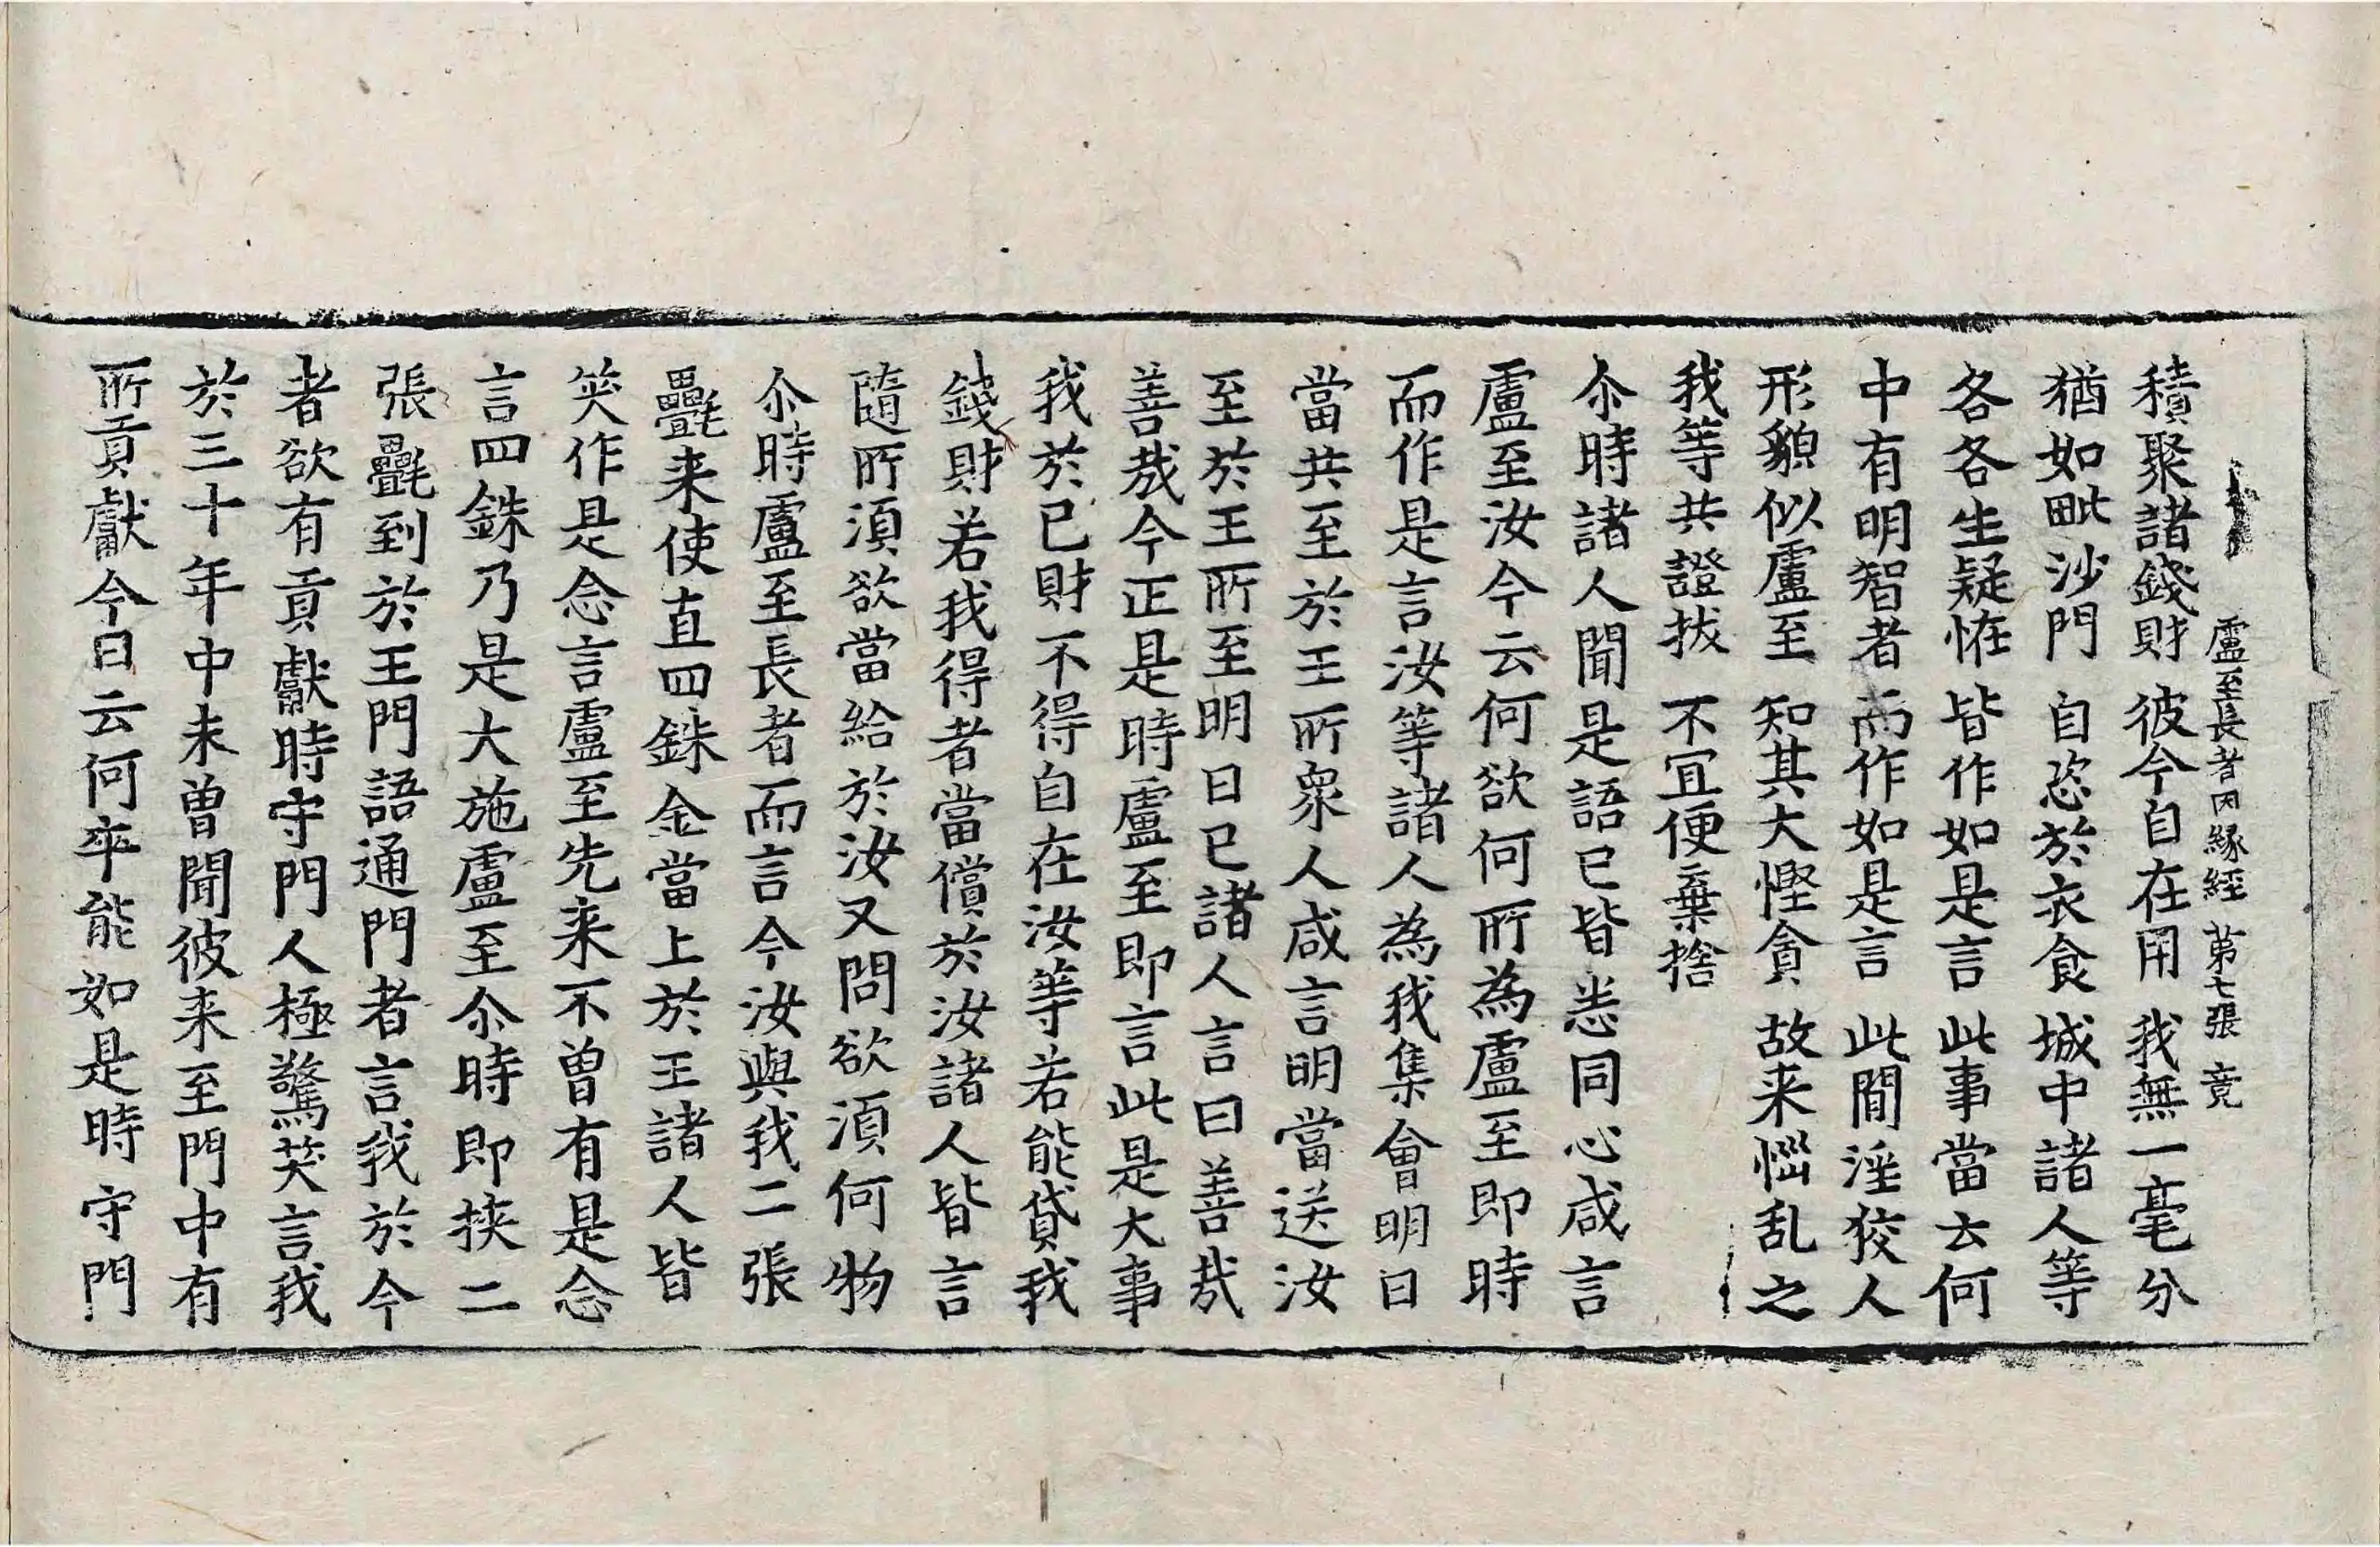 盧至長者因緣經 第七張 竟
積聚諸錢財 彼今自在用 我無一毫分
猶如毗沙門 自恣於衣食 城中諸人等
各各生疑恠 皆作如是言 此事當云何
中有明智者 而作如是言 此閒淫狡人
形貌似盧至 知其大慳貪 故来惱乱之
我等共證拔 不冝便棄捨
尒時諸人聞是語已皆悉同心咸言
盧至汝今云何欲何所為盧至即時
而作是言汝等諸人為我集會明日
當共至於王所衆人咸言明當送汝
至於王所至明日已諸人言曰善哉
善哉今正是時盧至即言此是大事
我於已財不得自在汝等若能貸我
錢財若我得者當償於汝諸人皆言
隨所湏欲當給於汝又問欲湏何物
尒時盧至長者而言今汝與我二張
㲲来使直四銖金當上於王諸人皆
笑作是念言盧至先来不曾有是念
言四銖乃是大施盧至尒時即挾二
張㲲到於王門語通門者言我於今
者欲有貢獻時守門人極驚笑言我
於三十年中未曾聞彼来至門中有
所貢獻今日云何卒能如是時守門